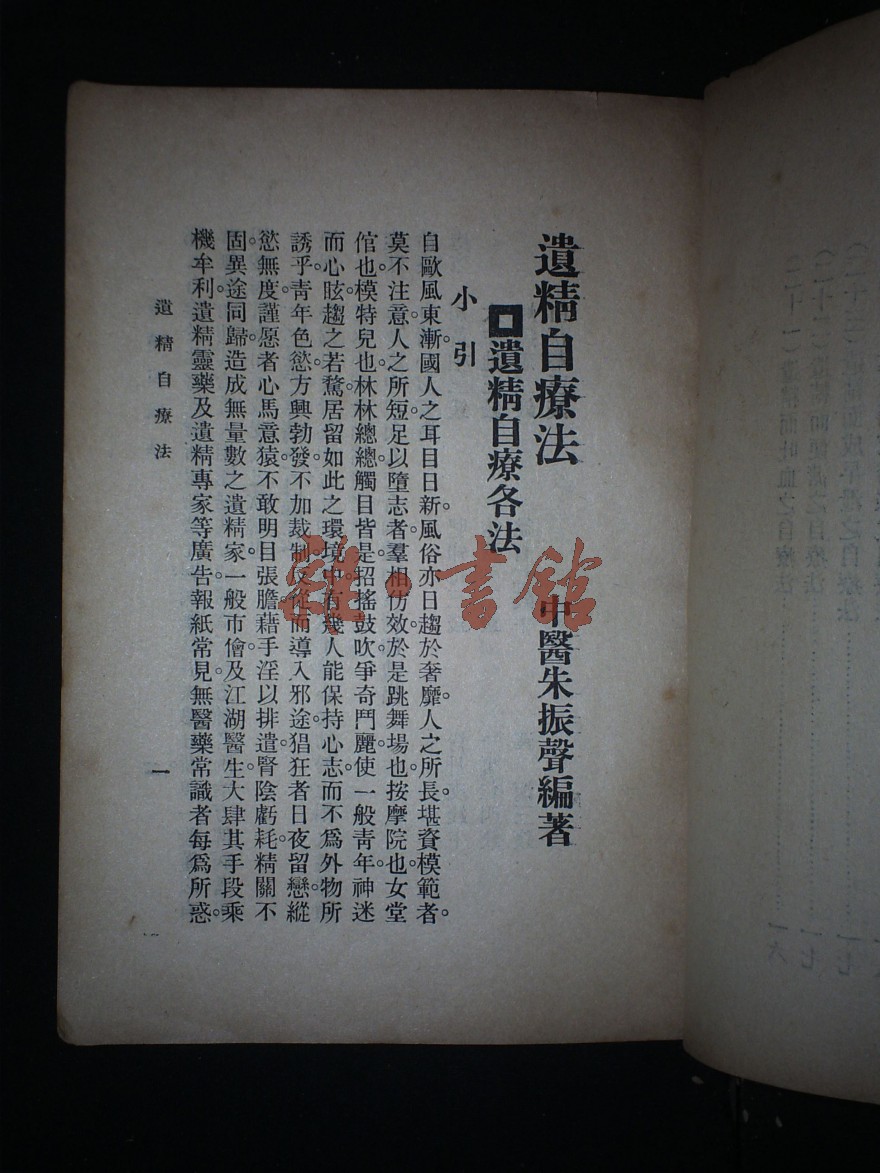 遺精自療法　中醫朱振聲編著
遺精自療各法
小引
自歐風東漸。國人之耳目日新。風俗亦日趨於奢靡。人之所長。堪資模範者。
莫不注意。人之所短。足以墮志者。羣相仿效。於是跳舞場也。按摩院也。女堂
倌也。模特兒也。林林總總。觸目皆是。招搖鼓吹。爭奇鬥麗。使一般靑年。神迷
而心眩。趨之若鶩。居留如此之環境中。有幾人能保持心志。而不爲外物所
誘乎。靑年色慾。方興勃發。不加裁制。反從而導入邪途。猖狂者日夜留戀。縱
慾無度。謹愿者心馬意猿。不敢明目張膽。藉手淫以排遣。腎陰虧耗。精關不
固。異途同歸。造成無量數之遺精家。一般市儈及江湖醫生。大肆其手段。乘
機牟利。遺精靈藥及遺精專家等廣告。報紙常見。無醫藥常識者。每爲所惑。
遺精自療法
一
雜·書館